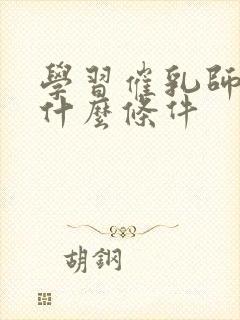 學習催乳師
什麼條件
胡鋼